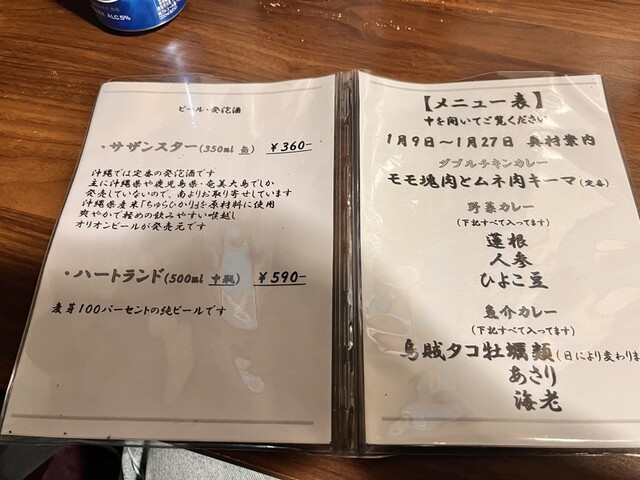 ALC.5%
ビール・発泡酒
・サザンスター(350ml 缶) ￥360-
沖縄では定番の発泡酒です
主に沖縄県や鹿児島県・奄美大島でしか
発売していないので、南よりお取り寄せしています
沖縄県産米「ちゅらひかり」を原材料に使用
爽やかで軽めの飲みやすい喉越し
オリオンビールが発売元です
・ハートランド(500ml 中瓶) ￥590-
麦芽100パーセントの純ビールです
【メニュー表】
中を開いてご覧ください
1月9日〜1月27日 奥村案内
ダブルチキンカレー
モモ塊肉とムネ肉キーマ(定番)
野菜カレー
(下記すべて入ってます)
蓮根
人参
ひよこ豆
魚介カレー
(下記すべて入ってます)
烏賊タコ牡蠣類(日により変わりま
あさり
海老